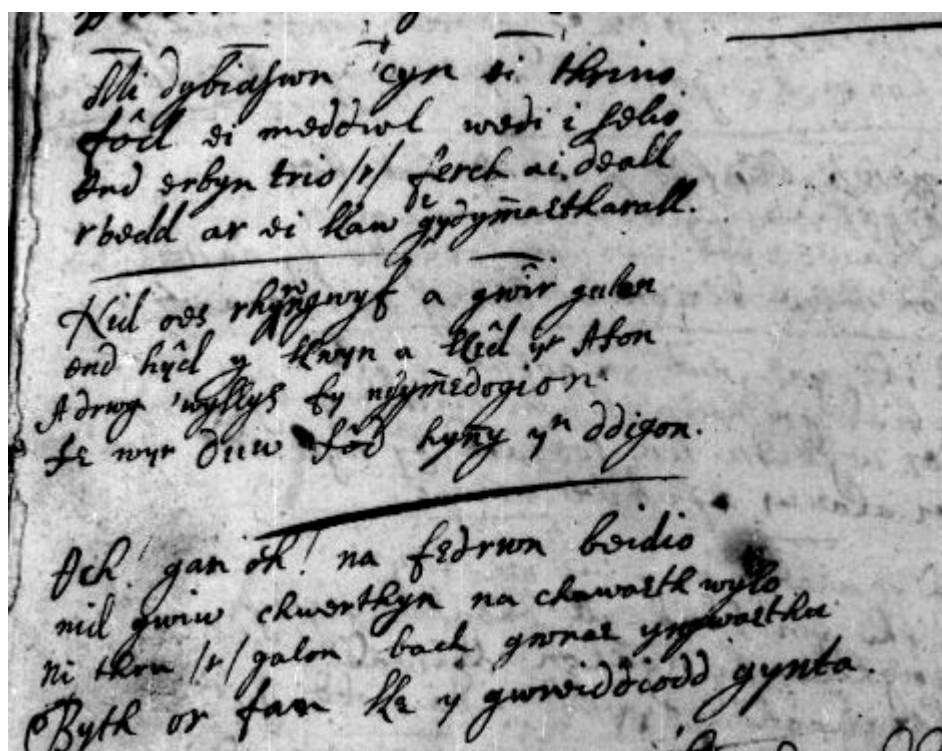 Mi dybiaswn 'cyn ei thrino
fôd ei meddwl wedi i selio
ond erbyn trio /r/ ferch ai deall
rhedd ar ei llaw fe gydymaetharall.
Nid oes rhyngwyf a gwîr galon
ond hŷd y llwyn a llêd yr Afon
A drwg 'wyllys fy nghymedogion
fe wyr duw fôd hyny yn ddigon.
Och! gan och! na fedrwn beidio
nid gwiw chwerthyn na chawaeth wylo
ni thru /r/ galon bach gwnae ymwaetha
Byth or fan lle y gwreiddiodd gynta.